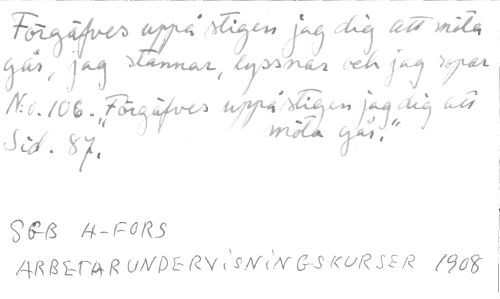 Förgäfves uppå stigen jag dig att möta
går, jag stannar, lyssnar och jag ropar
N:o. 106. "Förgäfves uppå stigen jag dig att
Sid. 87. möta går."
SGB H-FORS
ARBETARUNDERVISNINGSKURSER 1908